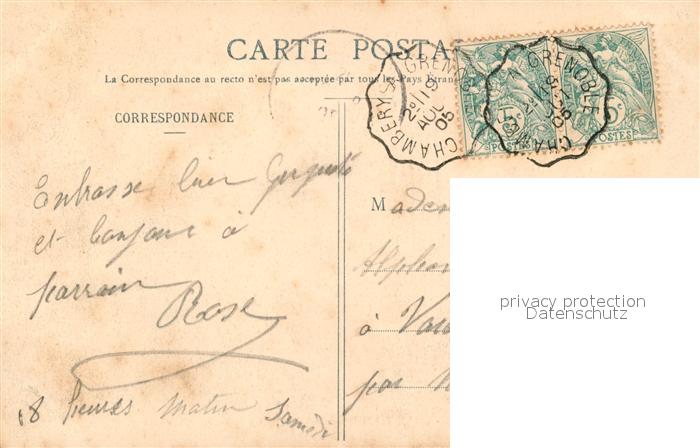 CARTE POSTA
La Correspondance au recto n'est pas acceptée par tous les Pays Etran
CORRESPONDANCE
CHAMBERY A GRENOBLE
2º 19
AOU
05
GRENOBLE
05
POSTES
POSTES
Embrasse bien
et bonjour à
parrain
Rose
8 heures matin Samedi
Made
Alphon
à Vau
par
privacy protection
Datenschutz